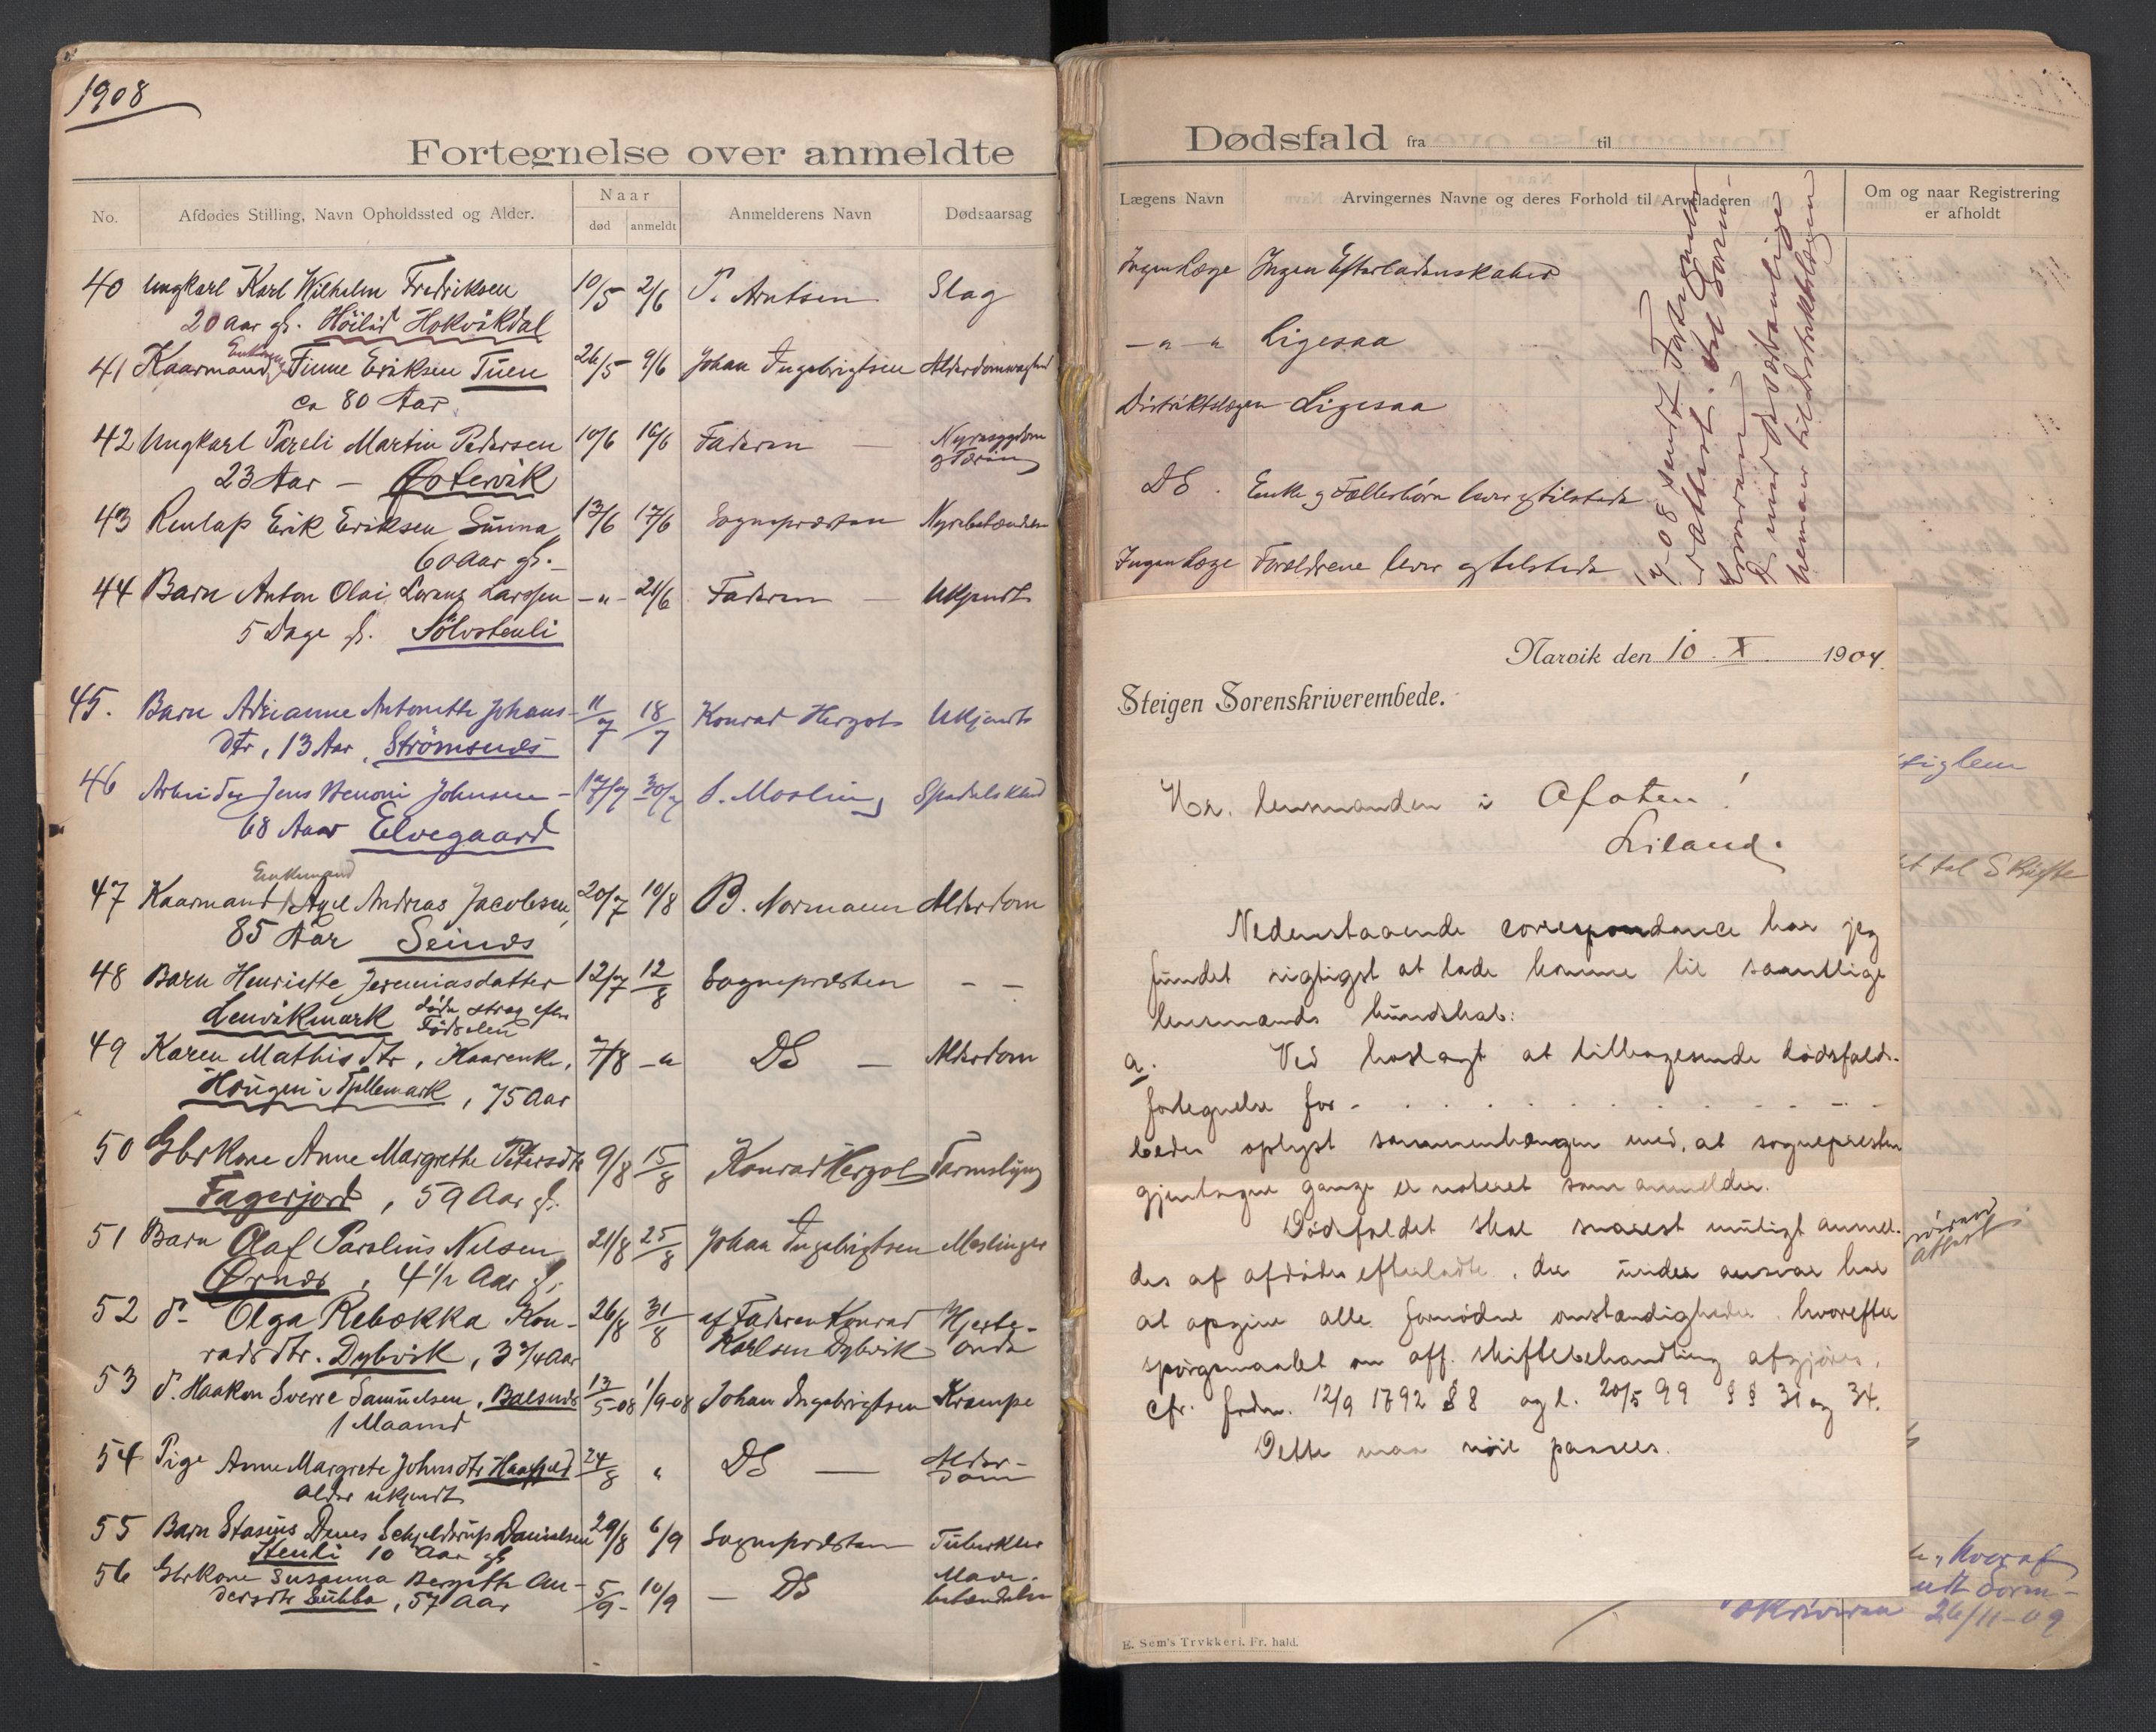 1908
Fortegnelse over anmeldte
No.
Afdødes Stilling, Navn Opholdssted og Alder.
Naar
død
anmeldt
Anmelderens Navn
Dødsaarsag
40 Ungkarl Karl Wilhelm Fredriksen 10/5 2/6 P. Arntsen Slag
20 Aar gl. Höilid Hokvikdal
Enkemand
41 Kaarmand Finne Eriksen Tuen 26/5 9/6 Johan Ingebrigtsen
ca 80 Aar
42 Ungkarl Pareli Martin Pedersen 10/6 16/6 Faderen — Nyresygdom
23 Aar — og Tæring
43 Renlap Erik Eriksen Sunna 13/6 17/6 Sognepræsten
60 Aar gl.
44 Barn Anton Olai Lorenz Larssen -"- 21/6 Faderen — Ukjendt
5 Dage gl. Sölvstenli
45. Barn Adrianne Antonette Johans- 11/7 18/7 Konrad Herzot Ukjendt
dtr, 13 Aar, Strömsnes
46 Arbeider Jens Benoni Johnsen - 17/7 30/7
68 Aar Elvegaard
Enkemand
47 Kaarmand Andreas Jacobsen, 20/7 10/8 B. Normann Alderdom
85 Aar Seines
48 Barn Henriette Jeremiasdatter 12/7 12/8 Sognepræsten - -
Lenvikmark döde strax efter
Födselen
49 Karen Mathisdtr, Kaarenke, 7/8 -"- DS — Alderdom
Haugen i Tjellemark, 75 Aar
50 Gbrkone Anne Margrethe Petersdtr 9/8 15/8 Konrad Herzot Tarmslyng
Fagerjord, 59 Aar gl.
51 Barn Olaf Parelius Nilsen 21/8 25/8 Johan Ingebrigtsen Meslinger
Ørnes, 4½ Aar gl.
52 d- Olga Rebekka Kon- 26/8 31/8 af Faderen Konrad Hjerte-
radsdtr. Dybvik, 3 3/4 Aar Karlsen Dybvik onde
53 d. Haakon Sverre Samuelsen, Balsnes 13/5-08 1/9-08 Johan Ingebrigtsen Krampe
1 Maaned
54 Pige Anne Margrete Johnsdtr 24/8 " DS — Alder-
Alder ukjendt dom
55 Barn Stasius Denes Schjelderup Danielsen 29/8 6/9 Sognepræsten Tuberkler
Stenli 10 Aar gl
56 Gbrkone Susanna Bergitte An- 5/9- 10/9 — DS Mave-
dersdtr Lubba, 57 Aar betændelse
Dødsfald fra til
Lægens Navn
Arvingernes Navne og deres Forhold til Arveladeren
Om og naar Registrering
er afholdt
Ingen Læge Ingen Efterladenskaber
-"-" Ligesaa
Distriktslægen Ligesaa
DS. Enke og Fællesbörn lever og tilstede
Ingen Læge Forældrene lever og tilstede
Narvik den 10. X. 1904.
Steigen Sorenskriverembede.
Hr. lensmanden i Ofoten!
Liland.
Nedenstaaende correspondance har jeg
fundet rigtigst at lade komme til samtlige
lensmænds kundskab:
a. Ved hoslagt at tilbagesende dødsfalds-
fortegnelse for - . . . . . . . . . - - -
bedes oplyst sammenhængen med, at sognepresten
gjentagne gange er noteret som anmelder.
Dödsfaldet skal snarest muligt anmel-
des af afdödes efterladte, der under ansvar har
at opgive alle fornødne omstændigheder hvorefter
spörgsmaalet om off. skiftebehandling afgjöres,
cfr. frdn. 12/9 1792 § 8 og l. 20/5 99 § § 31 og 34.
Dette maa nöie passes.
til Skifte
attest
skriveren 26/11-09
E. Sem's Trykkeri, Fr. hald.